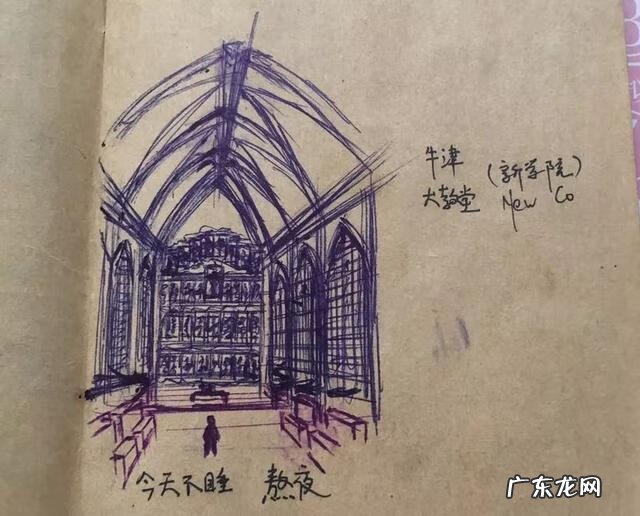 牛津 (新学院)
大教堂 New Co
今天不睡 熬夜
广东龙网